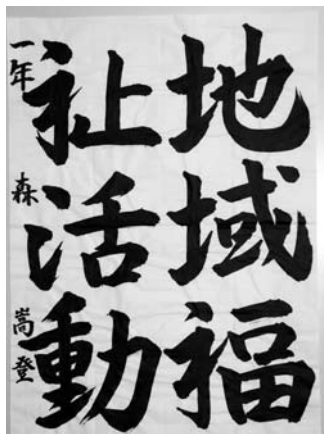 地域福
祉活動
一年 森 嵩登